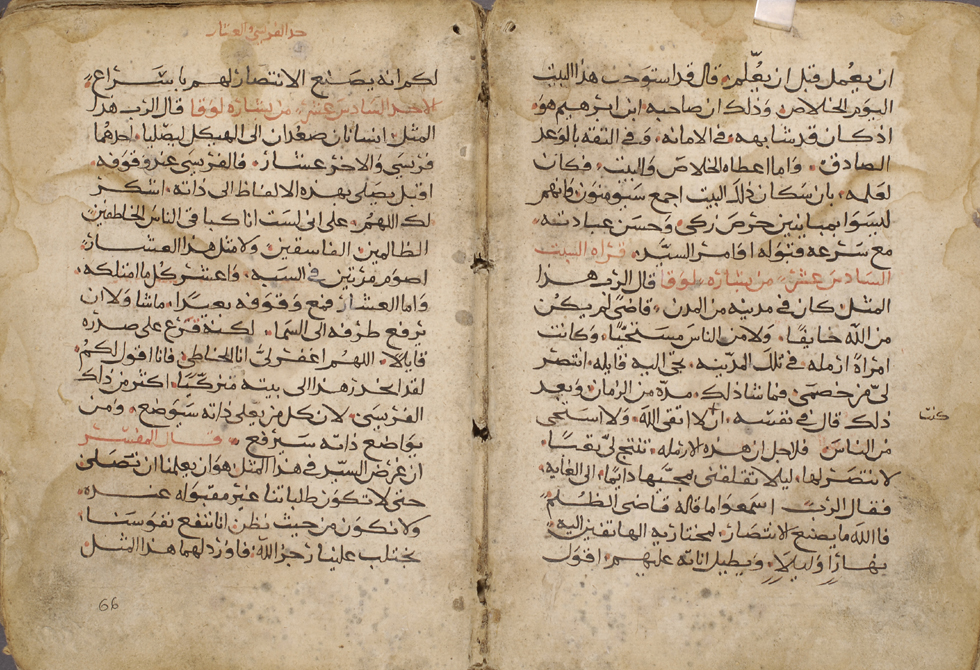 ان يعمل قبل ان يعلم • قال قد استوجب هذا البيت
اليوم الخلاص • وذلك ان صاحبه ابن ابرهيم هو •
اذ كان قد شابهه • في الامانه • وفي الثقه بالوعد
الصادق • واما اعطاه الخلاص والبيت • فكان
لعلمه • بان سكان ذلك البيت اجمع سيومنون كانهم
ليسوا بمباينين حرص زكى • وحسن عبادته •
مع سرعه قبوله اوامر السيد • قراه السبت
السادس عشر • من بشاره لوقا قال الرب هذا
المثل • كان في مدينه من المدن • قاضي لم يكن
من الله خايفا • ولا من الناس مستحيا • وكانت
امراة ارمله في تلك المدينه • تجي اليه قايله • انتصر
لي من خصمي • فما شا ذلك • مدة من الزمان • وبعد
ذلك قال في نفسه • ان لا اتقي الله • ولا استحي
كنت
من الناس • فلاجل ان هذه الارمله • تنتج لي تعسا •
لانتصر لها • ليلا تقلقني بمجيها دايما • الى الغايه •
فقال الرب • اسمعوا ما قاله قاضي الظلم
فالله ما يصنع الانتصار • لمختاريه الهاتفين اليه
نهارا وليلا • ويطيل اناته عليهم • اقول
حد الفريسي والعشار
لكم انه يصنع الانتصار لهم باسراع •
الاحد السادس عشر • من بشاره لوقا قال الرب هذا
المثل • انسانان صعدان الى الهيكل ليصليا • احدهما
فريسي والاخر عشار • فالفريسي عند وقوفه •
اقبل يصلي بهذه الالفاظ الى ذاته • اشكر
لك اللهم • على اني لست انا كباقي الناس الخاطفين
الظالمين الفاسقين • ولا مثل هذا العشار •
اصوم مرتين في السبه • واعشر كل ما امتلكه •
واما العشار فمع وقوفه بعيدا • ماشا ولا ان
يرفع طرفه الى السما • لكنه قرع على صدره
قايلا • اللهم اغفر لي انا الخاطي • فانا اقول لكم •
لقد انحدر هذا الى بيته مزكيا • اكثر من ذلك
الفريسي • لان كل من يعلي ذاته سيوضع • ومن
يواضع ذاته سيرفع • قال المفسر
ان غرض السيد في هذا المثل • هو ان يعلمنا ان نصلي
حتى لا تكون طلباتنا غير مقبوله عنده •
ولا تكون من حيث نظن اننا ننفع نفوسنا •
نجتلب علينا زجر الله • فاورد لهما هذا المثل
66